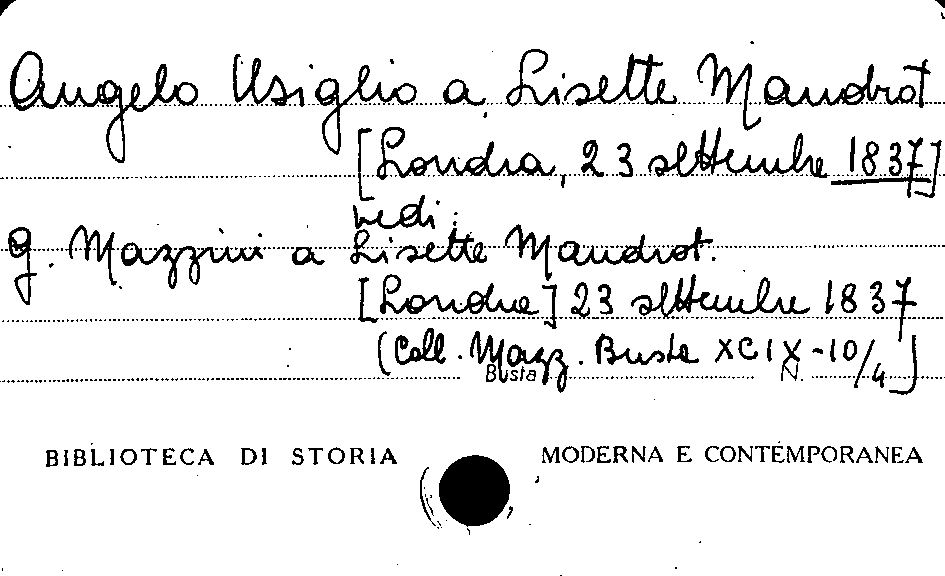 Angelo Usiglio a Lisette Mandrot
[Londra, 23 settembre 1837]
vedi:
G. Mazzini a Lisette Mandrot.
[Londra] 23 settembre 1837
(Coll. Mazz. Busta XCIX-10/4)
Busta N.
BIBLIOTECA DI STORIA MODERNA E CONTEMPORANEA